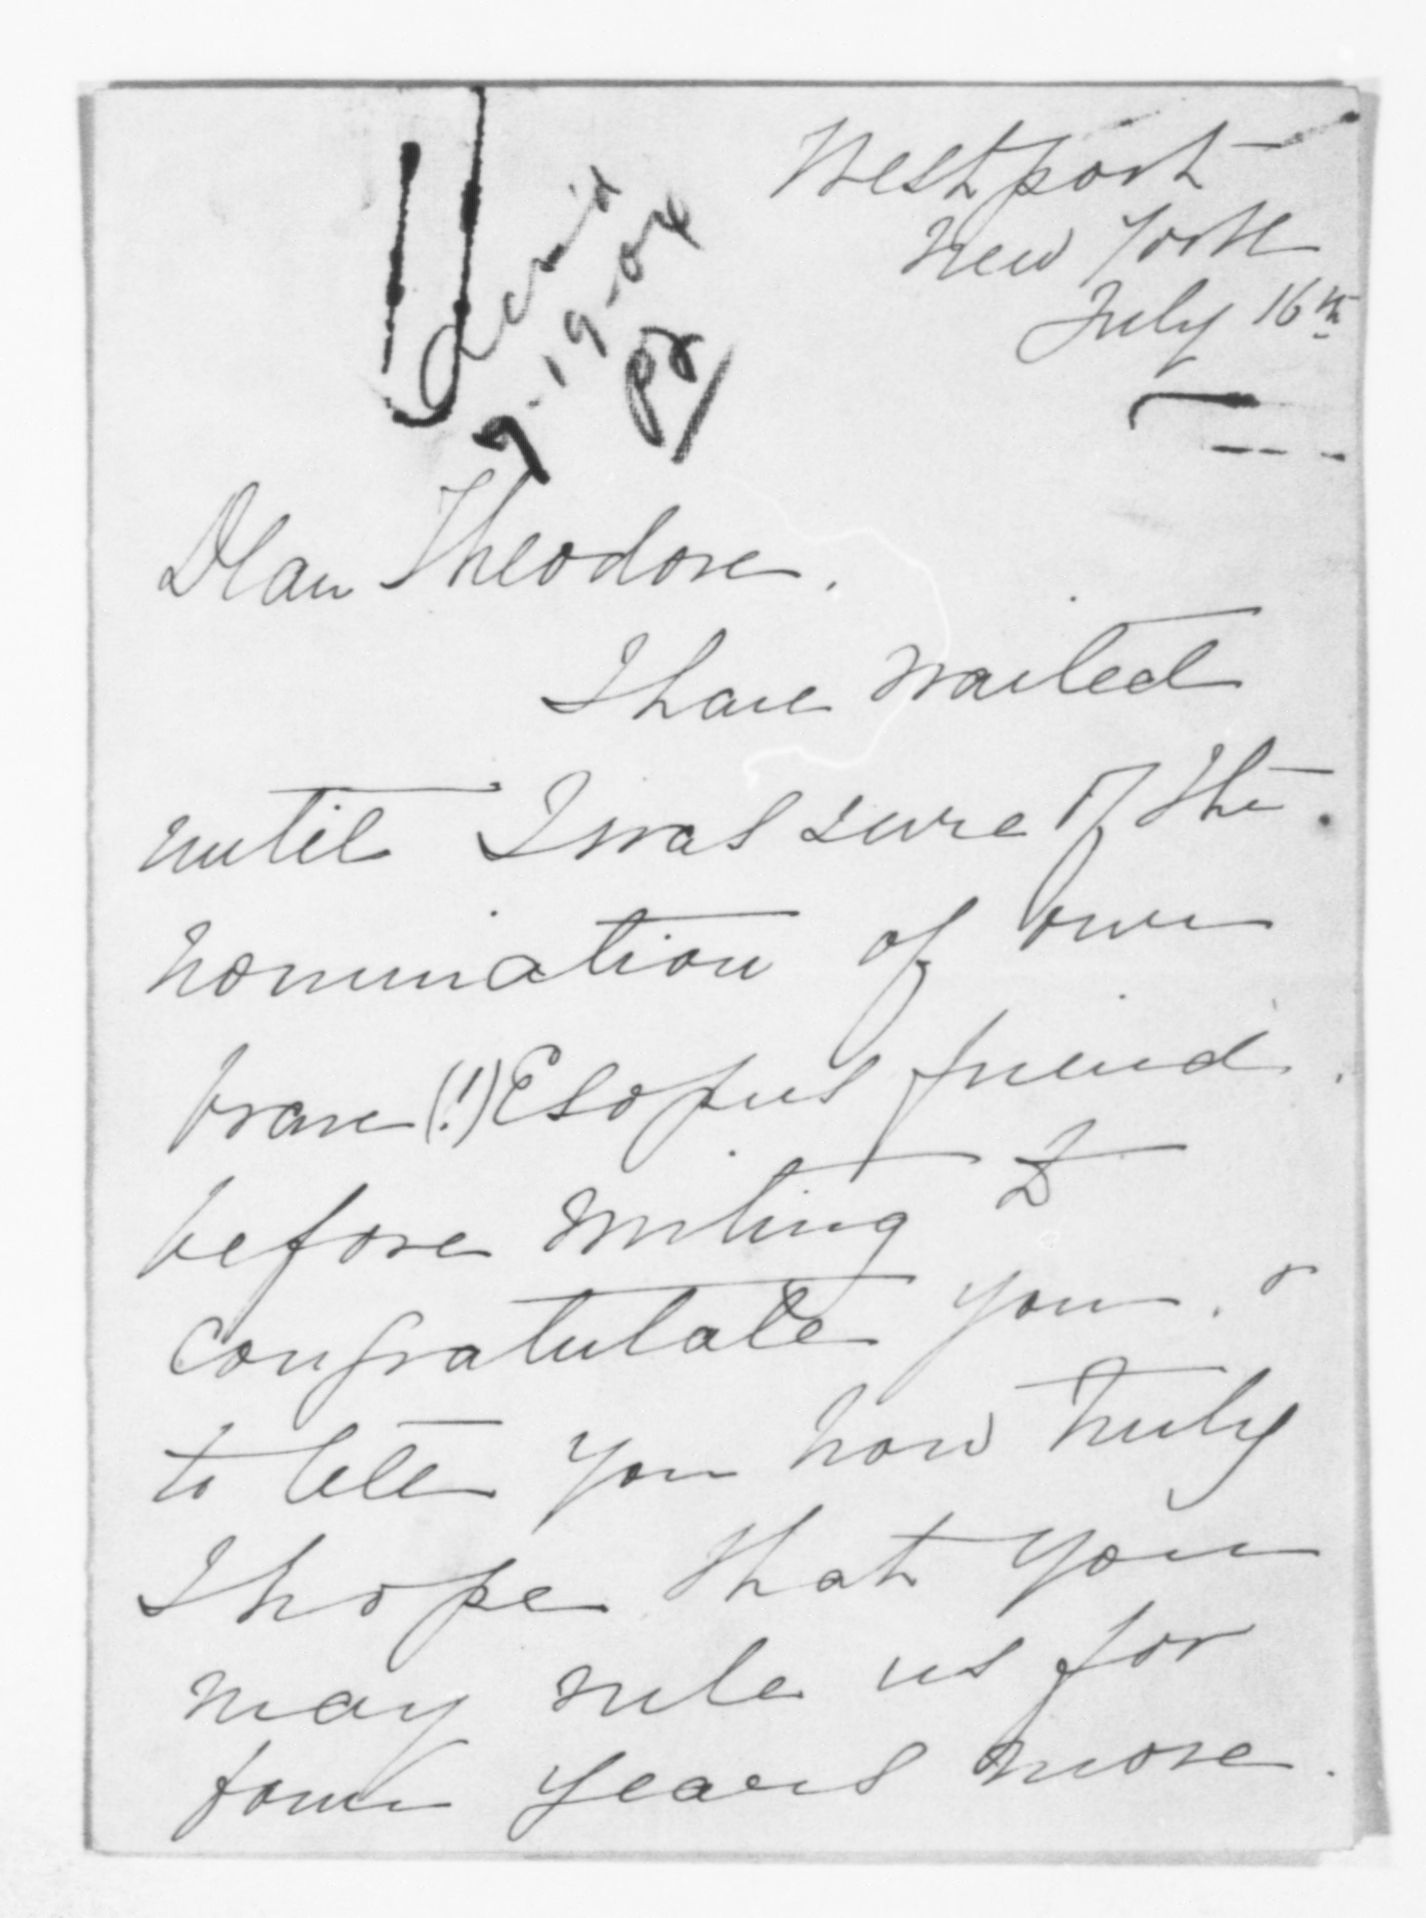 Westport
New York
July 16th
Ack'd
7-19-04
Dear Theodore.
I have waited
until I was sure of the
nomination of our
brave (!) Esopus friend
before writing to
congratulate you. &
to tell you how truly
I hope that you
may rule us for
four years more.